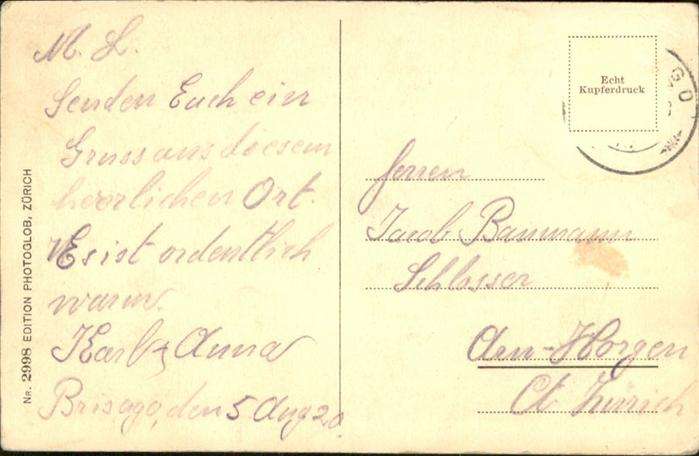 M. L.
Senden Euch ein
Gruss aus diesem
herrlichen Ort.
Es ist ordentlich
warm.
Karl & Anna
Brisago, den 5 Aug 20
Nr. 2998 EDITION PHOTOGLOB, ZÜRICH
Echt
Kupferdruck
GO
Herren
Jacob Baumann
Schlosser
Arn-Horgen
Ct. Zürich